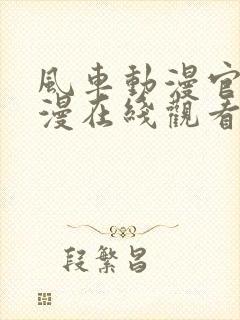 風車動漫官
漫在綫觀看
段繁昌